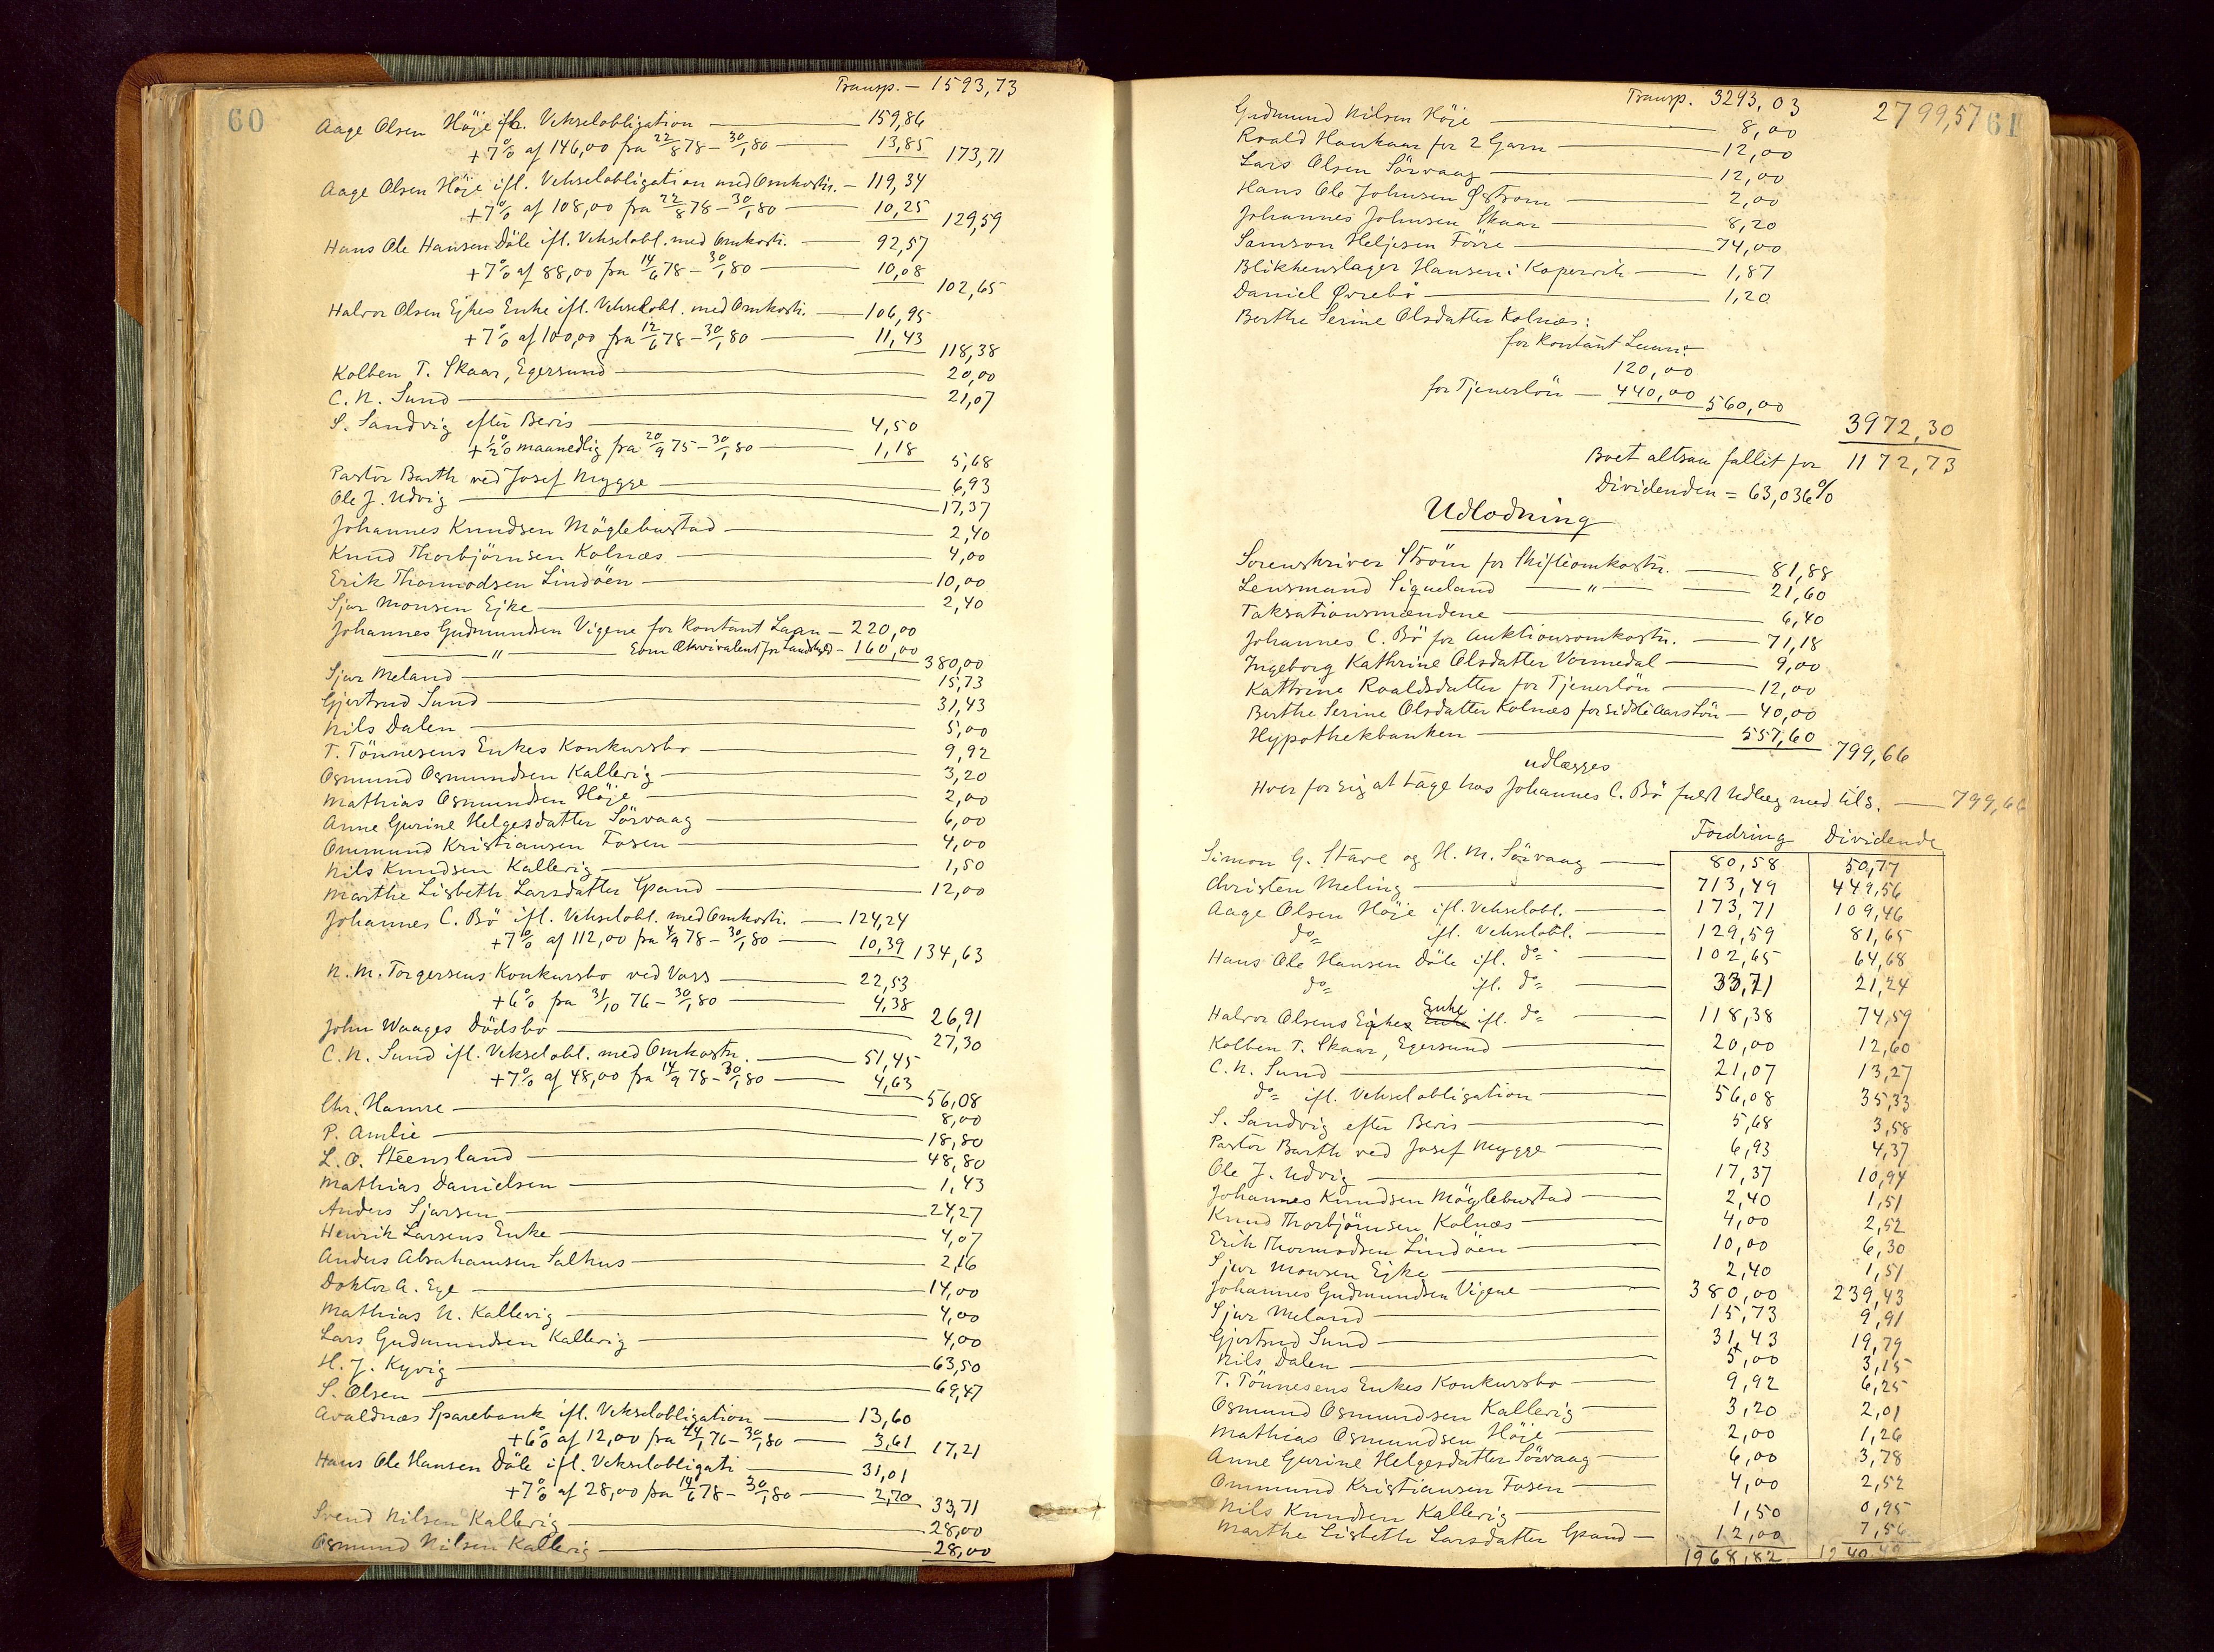 60
Transp. — 1593,73
Aage Olsen Höje ifl. Vekselobligation — 159,86
+ 7% af 146,00 fra 22/8 78 – 30/1 80 — 13,85 173,71
Aage Olsen Höje ifl. Vekselobligation med Omkostn. — 119,34
+ 7% af 108,00 fra 22/8 78 – 30/1 80 — 10,25 129,59
Hans Ole Hansen Döle ifl. Vekselobl. med Omkostn. — 92,57
+ 7% af 88,00 fra 14/6 78 – 30/1 80 — 10,08 102,65
Halvor Olsen Ejkes Enke ifl. Vekselobl. med Omkostn. — 106,95
+ 7% af 100,00 fra 12/6 78 – 30/1 80 — 11,43 118,38
Kolben T. Skaar, Egersund — 20,00
C. N. Sund — 21,07
S. Sandvig efter Beris — 4,50
+ ½% maanedlig fra 20/9 75 – 30/1 80 — 1,18 5,68
Pastor Barth ved Josef Mygge — 6,93
Ole J. Udvig — 17,37
Johannes Knudsen Möglebustad — 2,40
Knud Thorbjörnsen Kolnæs — 4,00
Erik Thormodsen Lindöen — 10,00
Sjur Monsen Ejke — 2,40
Johannes Gudmundsen Vigene for kontant Laan — 220,00
— " — Som Ækvivalent for Landhyld — 160,00 380,00
Sjur Meland — 15,73
Gjertrud Sund — 31,43
Nils Dalen — 5,00
T. Tönnesens Enkes Konkursbo — 9,92
Osmund Osmundsen Kallevig — 3,20
Mathias Osmundsen Höje — 2,00
Anne Gurine Helgesdatter Sörvaag — 6,00
Ommund Kristiansen Fosen — 4,00
Nils Knudsen Kallevig — 1,50
Marthe Lisbeth Larsdatter Spand — 12,00
Johannes C. Bö ifl. Vekselobl. med Omkostn. — 124,24
+ 7% af 112,00 fra 4/9 78 – 30/1 80 — 10,39 134,63
N. M. Torgersens Konkursbo ved Vass — 22,53
+ 6% fra 31/10 76 – 30/1 80 — 4,38 26,91
John Waages Dödsbo — 27,30
C. N. Sund ifl. Vekselobl. med Omkostn. — 51,45
+ 7% af 48,00 fra 14/9 78 – 30/1 80 — 4,63 56,08
Chr. Hamre — 8,00
P. Amlie — 18,80
L. O. Steensland — 48,80
Mathias Danielsen — 1,43
Anders Sjursen — 24,27
Henrik Larsens Enke — 4,07
Anders Abrahamsen Salhus — 2,16
Doktor A. Eye — 14,00
Mathias N. Kallevig — 4,00
Lars Gudmundsen Kallevig — 4,00
H. J. Kyvig — 63,50
S. Olsen — 69,47
Avaldnæs Sparebank ifl. Vekselobligation — 13,60
+ 6% af 12,00 fra 24/1 76 – 30/1 80 — 3,61 17,21
Hans Ole Hansen Döle ifl. Vekselobligati — 31,01
+ 7% af 28,00 fra 14/6 78 – 30/1 80 — 2,70 33,71
Svend Nilsen Kallevig — 28,00
Osmund Nilsen Kallevig — 28,00
Transp. 3293,03 2799,57 61
Gudmund Nilsen Höje — 8,00
Roald Haukaas for 2 Garn — 12,00
Lars Olsen Sörvaag — 12,00
Hans Ole Johnsen Østrom — 2,00
Johannes Johnsen Skaar — 8,20
Samson Heljesen Förre — 74,00
Blikkenslager Hansen i Kopervik — 1,87
Daniel Øvrebö — 1,20
Berthe Serine Olsdatter Kolnæs:
for kontant Laan:
120,00
for Tjenerlön — 440,00 560,00
3972,30
Boet altsaa fallit for 1172,73
Dividenden = 63,036%
Udlodning
Sorenskriver Ström for Skifteomkostn. — 81,88
Lensmand Siqueland — " — 21,60
Taksationsmændene — 6,40
Johannes C. Bö for Auktionsomkostn. — 71,18
Ingeborg Kathrine Olsdatter Vormedal — 9,00
Kathrine Roaldsdatter for Tjenerlön — 12,00
Berthe Serine Olsdatter Kolnæs for sidste Aars Lön — 40,00
Hypothekbanken — 557,60 799,66
udlægges
Hver for sig at tage hos Johannes C. Bö fuldt Udlæg med tils. — 799,66
Fordring Dividende
Simon G. Stave og H. M. Sörvaag — 80,58 50,77
Christen Meling — 713,49 449,56
Aage Olsen Höje ifl. Vekselobl. — 173,71 109,46
do ifl. Vekselobl. — 129,59 81,65
Hans Ole Hansen Döle ifl. do — 102,65 64,68
do ifl. do — 33,71 21,24
Halvor Olsens Ejkes Enke ifl. do — 118,38 74,59
Kolben T. Skaar, Egersund — 20,00 12,60
C. N. Sund — 21,07 13,27
do ifl. Vekselobligation — 56,08 35,33
S. Sandvig efter Beris — 5,68 3,58
Pastor Barth ved Josef Mygge — 6,93 4,37
Ole J. Udvig — 17,37 10,94
Johannes Knudsen Möglebustad — 2,40 1,51
Knud Thorbjörnsen Kolnæs — 4,00 2,52
Erik Thormodsen Lindöen — 10,00 6,30
Sjur Monsen Ejke — 2,40 1,51
Johannes Gudmundsen Vigene — 380,00 239,43
Sjur Meland — 15,73 9,91
Gjertrud Sund — 31,43 19,79
Nils Dalen — 5,00 3,15
T. Tönnesens Enkes Konkursbo — 9,92 6,25
Osmund Osmundsen Kallevig — 3,20 2,01
Mathias Osmundsen Höje — 2,00 1,26
Anne Gurine Helgesdatter Sörvaag — 6,00 3,78
Ommund Kristiansen Fosen — 4,00 2,52
Nils Knudsen Kallevig — 1,50 0,95
Marthe Lisbeth Larsdatter Spand — 12,00 7,56
1968,82